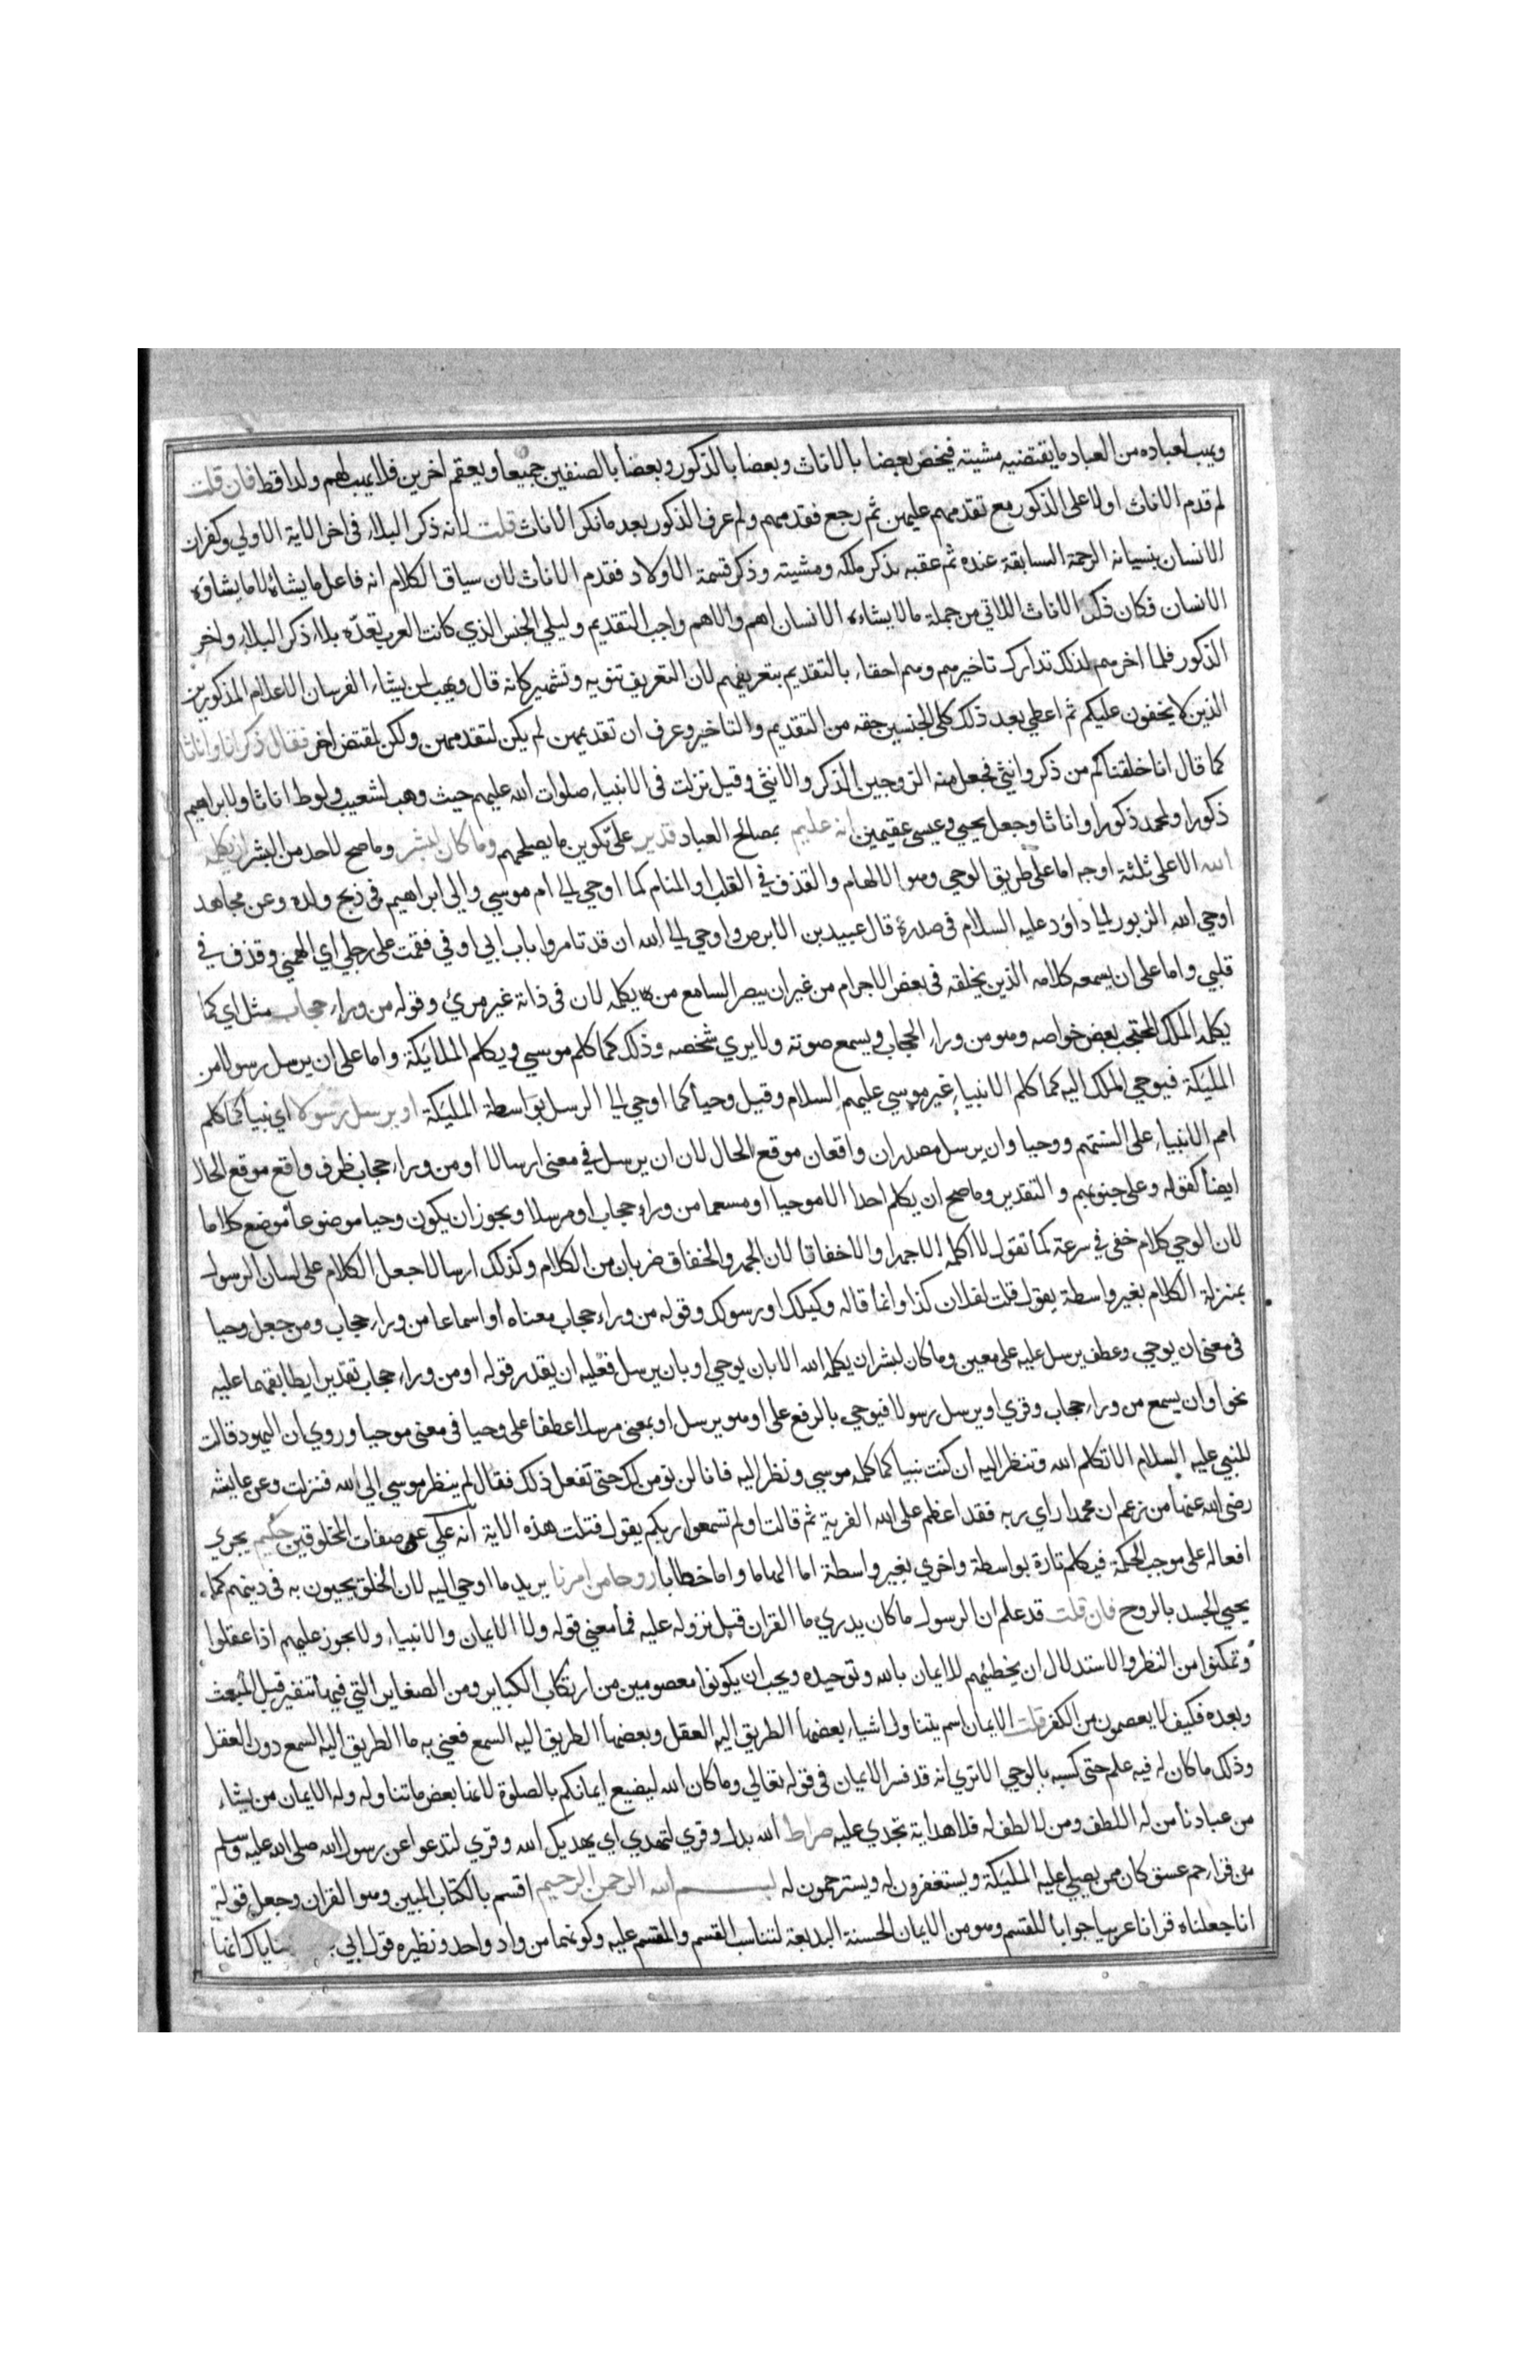 ويهب لعباده من العباد ما يقتضيه مشيته فيخص بعضا بالاناث وبعضا بالذكور وبعضا بالصنفين جميعا ويعقم اخرين فلا يهب لهم ولدا قط فان قلت
لم قدم الاناث اولا على الذكور مع تقدمهم عليهن ثم رجع فقدمهم ولم عرف الذكور بعد ما نكر الاناث قلت لانه ذكر البلاء فى اخر الاية الاولي وكفران
الانسان بنسيانه الرحمة السابقة عنده ثم عقبه بذكر ملكه ومشيته وذكر قسمة الاولاد فقدم الاناث لان سياق الكلام انه فاعل ما يشاؤه لا ما يشاؤه
الانسان فكان ذكر الاناث اللاتي من جملة ما لا يشاءه الانسان اهم والاهم واجب التقديم وليلي الجنس الذي كانت العرب تعده بلاء ذكر البلاء واخر
الذكور فلما اخرهم لذلك تدارك تاخيرهم وهم احقاء بالتقديم بتعريفهم لان التعريف تنويه وتشهير كانه قال ويهب لمن يشاء الفرسان الاعلام المذكورين
الذين لا يخفون عليكم ثم اعطي بعد ذلك كلى الجنسين حقه من التقديم والتاخير وعرف ان تقديمهن لم يكن لتقدمهن ولكن لمقتض اخر فقال ذكرانا واناثا
كما قال انا خلقناكم من ذكر وانثي فجعل منه الزوجين الذكر والانثي وقيل نزلت فى الانبياء صلوات الله عليهم حيث وهب لشعيب ولوط اناثا ولابراهيم
ذكورا ولمحمد ذكورا واناثا وجعل يحيي وعيسى عقيمين انه عليم بمصالح العباد قدير على تكوين ما يصلحهم وما كان لبشر وما صح لاحد من البشر ان يكلمه
الله الا على ثلثة اوجه اما على طريق الوحي وهو الالهام والقذف في القلب او المنام كما اوحي الى ام موسي والي ابراهيم فى ذبح ولده وعن مجاهد
اوحي الله الزبور الى داؤد عليه السلام فى صدره قال عبيد بن الابرص واوحي الى الله ان قد تامروا بابل ابي اوفي فقمت على رجلي اي الهمني وقذف في
قلبي واما على ان يسمعه كلامه الذين يخلقه فى بعض الاجرام من غير ان يبصر السامع من يكلمه لان فى ذاته غير مرئ وقوله من وراء حجاب مثل اي كما
يكلم الملك المحتجب بعض خواصه وهو من وراء الحجاب ويسمع صوته ولا يري شخصه وذلك كما كلم موسي ويكلم الملائكة واما على ان يرسل رسولا من
المليكة فيوحي الملك اليه كما كلم الانبياء غير موسي عليهم السلام وقيل وحيا كما اوحي الى الرسل بواسطة المليكة او يرسل رسولا اي نبيا كما كلم
امم الانبياء على السنتهم ووحيا وان يرسل مصدران واقعان موقع الحال لان ان يرسل في معنى ارسالا او من وراء حجاب ظرف واقع موقع الحال
ايضا كقوله وعلى جنوبهم والتقدير وما صح ان يكلم احدا الا موحيا او مسمعا من وراء حجاب او مرسلا ويجوز ان يكون وحيا موضوعا موضع كلاما
لان الوحي كلام خفى في سرعة كما تقول لا اكلمه الا جهرا والا خفاتا لان الجهر والخفات ضربان من الكلام وكذلك ارسالا جعل الكلام على لسان الرسول
بمنزلة الكلام بغير واسطة يقول قلت لفلان كذا وانما قاله وكيلك او رسولك وقوله من وراء حجاب معناه أو اسماعا من وراء حجاب ومن جعل وحيا
فى معنى ان يوحي وعطف يرسل عليه على معين وما كان لبشر ان يكلمه الله الا بان يوحي او بان يرسل فعليه ان يقدر قوله او من وراء حجاب تقديرا يطابقهما عليه
نحو او ان يسمع من وراء حجاب وقري او يرسل رسولا فيوحي بالرفع على او هو يرسل او بمعنى مرسلا عطفا على وحيا فى معنى موحيا وروي ان اليهود قالت
للنبي عليه السلام الا تكلم الله وتنظر اليه ان كنت نبيا كما كلمه موسي ونظر اليه فانا لن نومن لك حتى تفعل ذلك فقال لم ينظر موسي الي الله فنزلت وعن عايشة
رضي الله عنها من زعم ان محمدا راي ربه فقد اعظم على الله الفرية ثم قالت اولم تسمعوا ربكم يقول فتلت هذه الاية انه علي عن صفات المخلوقين حكيم يجري
افعاله على موجب الحكمة فيكلم تارة بواسطة واخري بغير واسطة اما الهاما واما خطابا روحا من امرنا يريد ما اوحي اليه لان الخلق يحيون به فى دينهم كما
يحيي الجسد بالروح فان قلت قد علم ان الرسول ما كان يدري ما القران قبل نزوله عليه فما معني قوله ولا الايمان والانبياء ولا يجوز عليهم اذا عقلوا
وتمكنوا من النظر والاستدلال ان يخطئهم الايمان بالله وتوحيده ويجب ان يكونوا معصومين من ارتكاب الكباير ومن الصغاير التي فيها تنفير قبل المبعث
وبعده فكيف لا يعصمون من الكفر قلت الايمان اسم يتناول اشياء بعضها الطريق اليه العقل وبعضها الطريق اليه السمع فعني به ما الطريق اليه السمع دون العقل
وذلك ما كان له فيه علم حتى كسبه بالوحي الا تري انه قد فسر الايمان فى قوله تعالي وما كان الله ليضيع ايمانكم بالصلوة لانها بعض ما تناوله وله الايمان من يشاء
من عبادنا من له اللطف ومن لا لطف له فلا هداية تجدي عليه صراط الله بدل وقري لتهدي اي يهديك الله وقري لتدعوا عن رسول الله صلى الله عليه وسلم
من قراء حم عسق كان ممن يصلي عليه المليكة ويستغفرون له ويسترحمون له بسم الله الرحمن الرحيم اقسم بالكتاب المبين وهو القران وجعل قوله
انا جعلناه قرانا عربيا جوابا للقسم وهو من الايمان الحسنة البديعة لتناسب القسم والمقسم عليه وكونهما من واد واحد ونظيره قول ابي